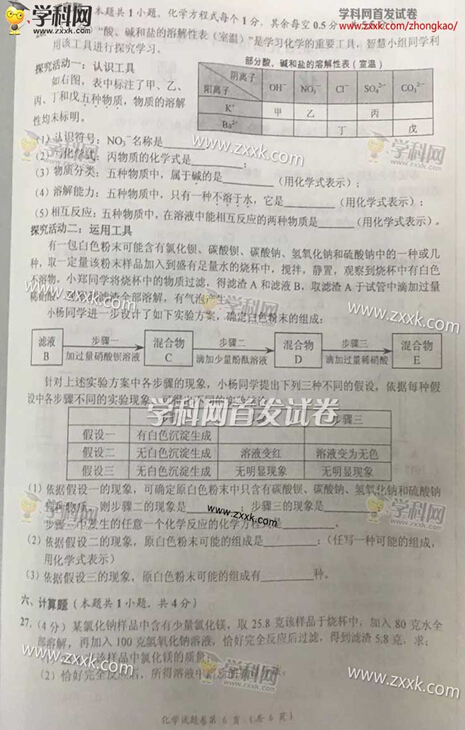 学科网
zxxk.com
学科网首发试卷
www.zxxk.com/zhongkao/
本题共1小题,化学方程式每个1分,其余每空0.5分
“酸、碱和盐的溶解性表(室温)”是学习化学的重要工具,智慧小组同学利
用该工具进行探究学习。
探究活动一:认识工具
如右图,表中标注了甲、乙、
丙、丁和戊五种物质,物质的溶解
性均未标明。
部分酸、碱和盐的溶解性表(室温)
阴离子
阳离子
OH⁻ NO₃⁻ Cl⁻ SO₄²⁻ CO₃²⁻
K⁺ 甲 乙 丙
Ba²⁺ 丁 戊
(1)认识符号:NO₃⁻名称是
(2)化学式:丙物质的化学式是 ;
(3)物质分类:五种物质中,属于碱的是 (用化学式表示);
(4)溶解能力:五种物质中,只有一种不溶于水,它是 (用化学式表示);
(5)相互反应:五种物质中,在溶液中能相互反应的两种物质是 (用化学式表示)。
探究活动二:运用工具
有一包白色粉末可能含有氯化钡、碳酸钡、碳酸钠、氢氧化钠和硫酸钠中的一种或几
种,取一定量该粉末样品加入到盛有足量水的烧杯中,搅拌,静置,观察到烧杯中有白色
不溶物,小郑同学将烧杯中的物质过滤,得滤渣A和滤液B,取滤渣A于试管中滴加过量
全部溶解,有气泡产生。
小杨同学进一步设计了如下实验方案,确定白色粉末的组成:
滤液B 步骤一 加过量硝酸钡溶液 混合物C 步骤二 滴加少量酚酞溶液 混合物D 步骤三 滴加过量稀硝酸 混合物E
针对上述实验方案中各步骤的现象,小杨同学提出下列三种不同的假设,依据每种假
设中各步骤不同的实验现象
学科网首发试卷
假设一 有白色沉淀生成
假设二 无白色沉淀生成 溶液变红 溶液变为无色
假设三 无白色沉淀生成 无明显现象 无明显现象
(1)依据假设一的现象,可确定原白色粉末中只含有碳酸钡、碳酸钠、氢氧化钠和硫酸钠
则步骤二的现象是 步骤三的现象是
步骤三中发生的任意一个化学反应的化学方程式是
(2)依据假设二的现象,原白色粉末可能的组成是 ;(任写一种可能的组成,
用化学式表示)
(3)依据假设三的现象,原白色粉末可能的组成有 种。
六、计算题(本题共1小题,共4分)
27.(4分)某氯化钠样品中含有少量氯化镁,取25.8克该样品于烧杯中,加入80克水全
部溶解,再加入100克氢氧化钠溶液,恰好完全反应后过滤,得到滤渣5.8克,求:
(1)该样品中氯化镁的质量
(2)恰好完全反应后,所得溶液中
化学试题卷第6页(共6页)